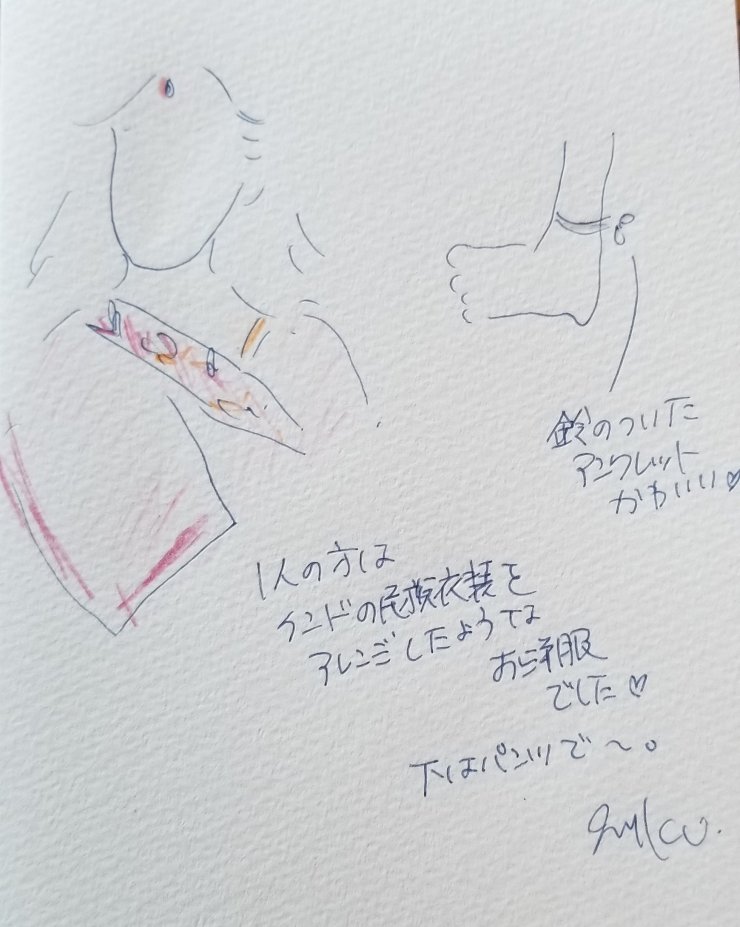 鈴のついた
アンクレット
かわいい♡
1人の方は
インドの民族衣装を
アレンジしたような
お洋服
でした♡
下はパンツで〜。